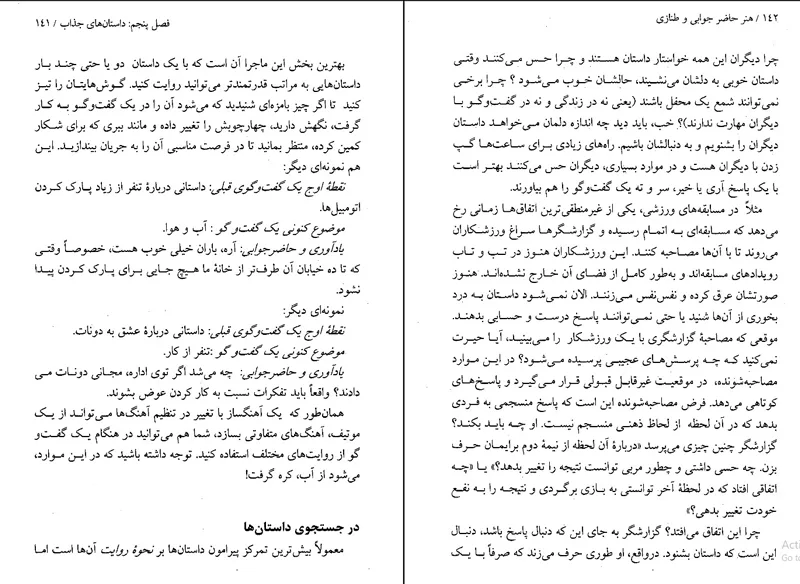 ۱۴۲ / هنر حاضر جوابی و طنازی
چرا دیگران این همه خواستار داستان هستند و چرا حس می‌کنند وقتی
داستان خوبی به دلشان می‌نشیند، حالشان خوب می‌شود ؟ چرا برخی
نمی‌توانند شمع یک محفل باشند (یعنی نه در زندگی و نه در گفت‌وگو با
دیگران مهارت ندارند)؟ خب، باید دید چه اندازه دلمان می‌خواهد داستان
دیگران را بشنویم و به دنبالشان باشیم. راه‌های زیادی برای ساعت‌ها گپ
زدن با دیگران هست و در موارد بسیاری، دیگران حس می‌کنند بهتر است
با یک پاسخ آری یا خیر، سر و ته یک گفت‌وگو را هم بیاورند.
مثلاً در مسابقه‌های ورزشی، یکی از غیرمنطقی‌ترین اتفاق‌ها زمانی رخ
می‌دهد که مسابقه‌ای به اتمام رسیده و گزارشگرها سراغ ورزشکاران
می‌روند تا با آن‌ها مصاحبه کنند. این ورزشکاران هنوز در تب و تاب
رویدادهای مسابقه‌اند و به‌طور کامل از فضای آن خارج نشده‌اند. هنوز
صورتشان عرق کرده و نفس‌نفس می‌زنند. الان نمی‌شود داستان به درد
بخوری از آن‌ها شنید یا حتی نمی‌توانند پاسخ درست و حسابی بدهند.
موقعی که مصاحبهٔ گزارشگری با یک ورزشکار را می‌بینید، آیا حیرت
نمی‌کنید که چه پرسش‌های عجیبی پرسیده می‌شود؟ در این موارد
مصاحبه‌شونده، در موقعیت غیرقابل قبولی قرار می‌گیرد و پاسخ‌های
کوتاهی می‌دهد. فرض مصاحبه‌شونده این است که پاسخ منسجمی به فردی
بدهد که در آن لحظه از لحاظ ذهنی منسجم نیست. او چه باید بکند؟
گزارشگر چنین چیزی می‌پرسد «دربارهٔ آن لحظه از نیمهٔ دوم برایمان حرف
بزن. چه حسی داشتی و چطور مربی توانست نتیجه را تغییر بدهد؟» یا «چه
اتفاقی افتاد که در لحظهٔ آخر توانستی به بازی برگردی و نتیجه را به نفع
خودت تغییر بدهی؟»
چرا این اتفاق می‌افتد؟ گزارشگر به جای این که دنبال پاسخ باشد، دنبال
این است که داستان بشنود. درواقع، او طوری حرف می‌زند که صرفاً با یک
فصل پنجم: داستان‌های جذاب / ۱۴۱
بهترین بخش این ماجرا آن است که با یک داستان دو یا حتی چند بار
داستان‌هایی به مراتب قدرتمندتر می‌توانید روایت کنید. گوش‌هایتان را تیز
کنید تا اگر چیز بامزه‌ای شنیدید که می‌شود آن را در یک گفت‌وگو به کار
گرفت، نگهش دارید، چهارچوبش را تغییر داده و مانند ببری که برای شکار
کمین کرده، منتظر بمانید تا در فرصت مناسبی آن را به جریان بیندازید. این
هم نمونه‌ای دیگر:
نقطهٔ اوج یک گفت‌وگوی قبلی: داستانی دربارهٔ تنفر از زیاد پارک کردن
اتومبیل‌ها.
موضوع کنونی یک گفت‌و گو : آب و هوا.
یادآوری و حاضرجوابی: آره، باران خیلی خوب هست، خصوصاً وقتی
که تا ده خیابان آن طرف‌تر از خانهٔ ما هیچ جایی برای پارک کردن پیدا
نشود.
نمونه‌ای دیگر:
نقطهٔ اوج یک گفت‌وگوی قبلی: داستانی دربارهٔ عشق به دونات.
موضوع کنونی یک گفت‌و گو :تنفر از کار.
یادآوری و حاضرجوابی: چه می‌شد اگر توی اداره، مجانی دونات می
دادند؟ واقعاً باید تفکرات نسبت به کار کردن عوض بشوند.
همان‌طور که یک آهنگساز با تغییر در تنظیم آهنگ‌ها می‌تواند از یک
موتیف، آهنگ‌های متفاوتی بسازد، شما هم می‌توانید در هنگام یک گفت‌و
گو از روایت‌های مختلف استفاده کنید. توجه داشته باشید که در این موارد،
می‌شود از آب، کره گرفت!
در جستجوی داستان‌ها
معمولاً بیش‌ترین تمرکز پیرامون داستان‌ها بر نحوهٔ روایت آن‌ها است اما
Acti
Go to